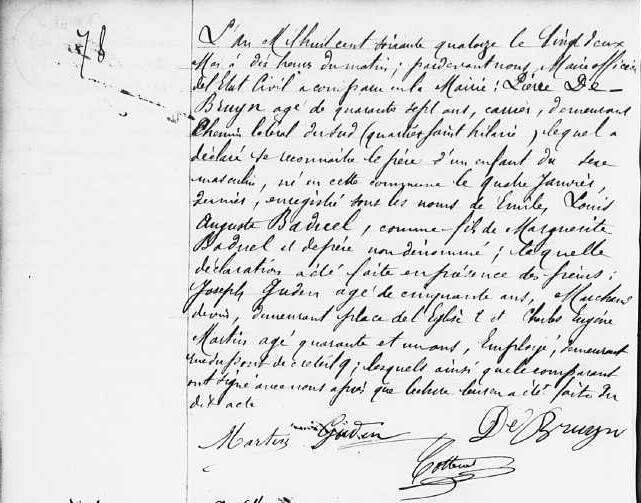 78
L'an Mil huit cent soixante quatorze le Vingt deux
Mai à dix heures du matin; pardevant nous Maire officier
de l'Etat Civil a comparu en la Mairie: Pierre De
Bruyn agé de quarante sept ans, carrier, demeurant
Chemin latéral du Sud (quartier Saint hilaire), lequel a
déclaré se reconnaitre le père d'un enfant du sexe
masculin, né en cette commune le quatre Janvier,
dernier, enregistré sous les noms de Emile, Louis
Auguste Baduel, comme fils de Marguerite
Baduel et de père non dénommé; laquelle
déclaration a été faite en présence des sieurs:
Joseph Guden agé de cinquante ans, Marchand
de vin, demeurant place de l'Eglise 2 et Charles Eugène
Martin agé quarante et un ans, Employé, demeurant
rue du pont de creteil 9; lesquels ainsi que le comparant
ont signé avec nous après que lecture leur en a été faite du
dit acte
Martin Guden De Bruyn